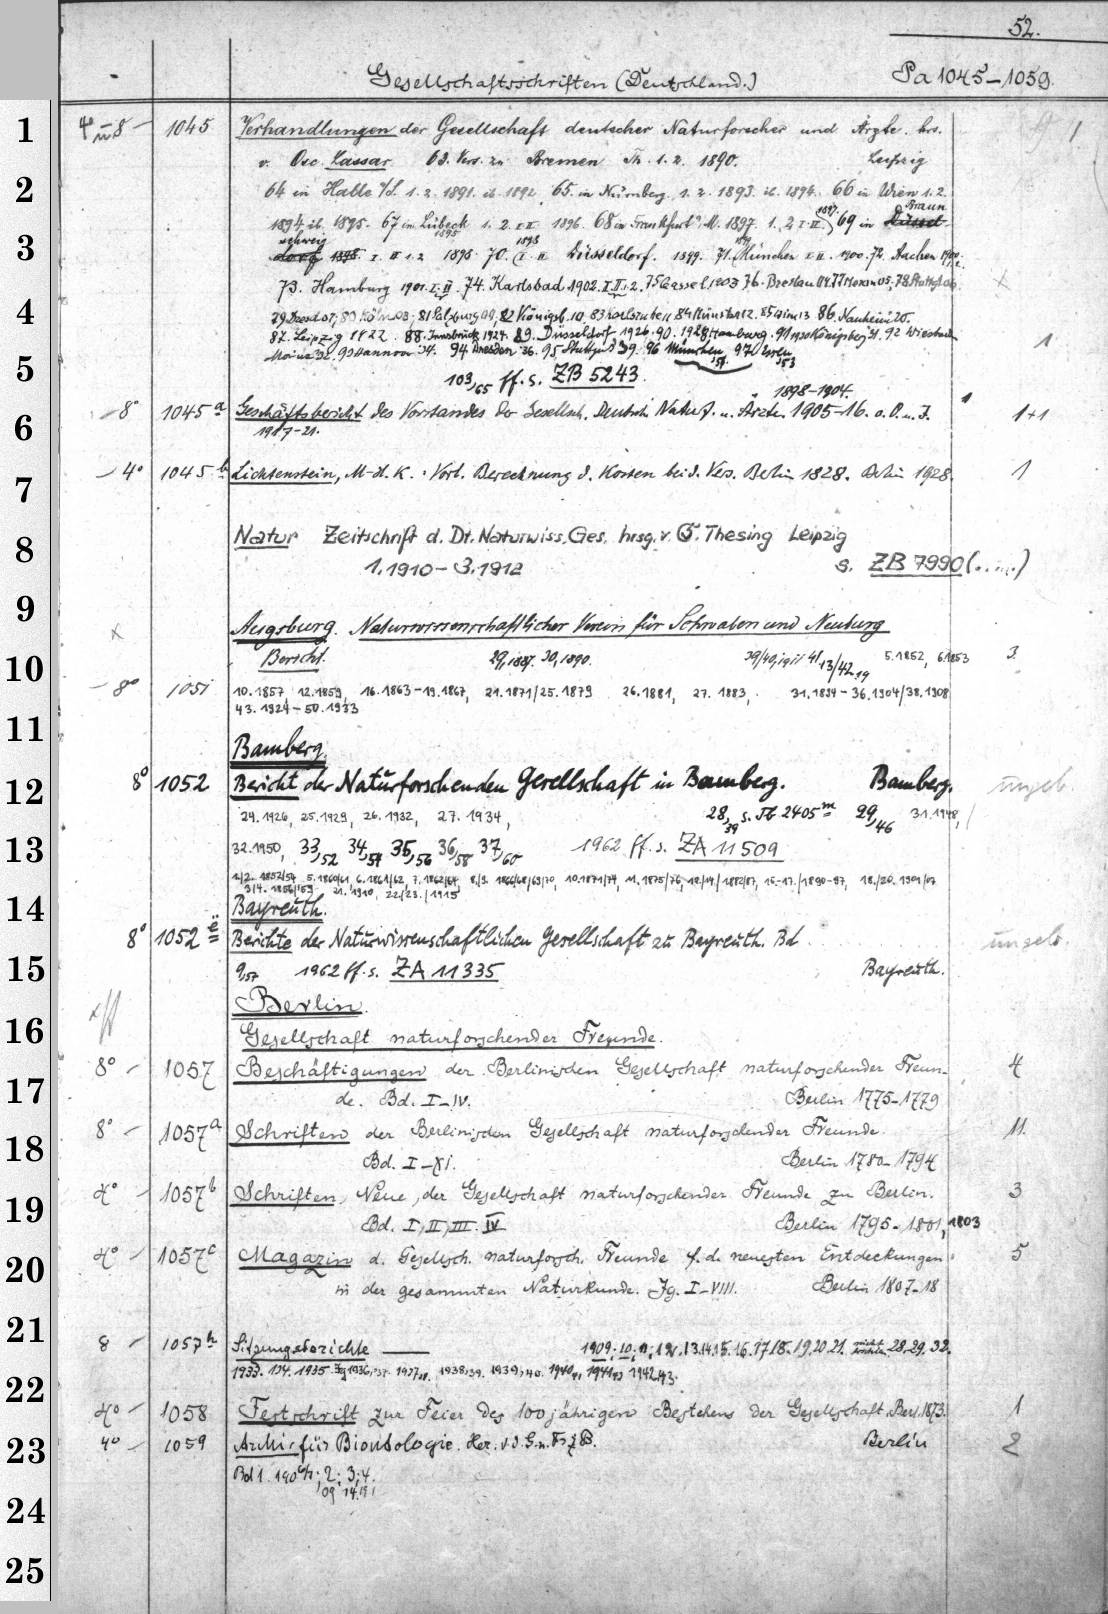 52.
Gesellschaftsschriften (Deutschland.) Pa 1045–1059.
4° u 8 – 1045 Verhandlungen der Gesellschaft deutscher Naturforscher und Ärzte. hrs. 1
v. Osc. Lassar. 63. Vers. zu Bremen Th. 1. 2. 1890. Leipzig
64 in Halle a/S. 1. 2. 1891. ib. 1892, 65 in Nürnberg. 1. 2. 1893. ib. 1894. 66 in Wien 1. 2.
1894, ib. 1895. 67 in Lübeck 1. 2. I II 1896. 68 in Frankfurt a. M. 1897. 1. 2 I II 1897. 69 in Düssel- Braun
1895
schweig
dorf 1898. I. II 1. 2 1898. 70. (I. II 1898 Düsseldorf. 1899. 71. München I II. 1900. 72. Aachen
73. Hamburg 1901. I. II. 74. Karlsbad 1902. I. II. 2. 75 Cassel 1903 76. Breslau 04. 77 Meran 05; 78 Stuttgt 06.
79 Dresd 07; 80 Köln 08; 81 Salzburg 09, 82 Königsb. 10, 83 Karlsruhe 11 84 Münster 12. 85 Wien 13 86. Nauheim 20.
87. Leipzig 1922. 88. Innsbruck 1924. 89. Düsseldorf 1926. 90. 1928, Hamburg. 91 1930 Königsberg 31. 92 Wiesbaden 1
Mainz 32. 93 Hannover 34. 94 Dresden 36. 95 Stuttgart 39. 96 München, 97 Essen
51. 53
103,65 ff. s. ZB 5243.
1898–1904.
– 8° 1045 a Geschäftsbericht des Vorstandes der Gesellsch. Deutsch. Naturf. u. Ärzte. 1905–16. o. O. u. J. 1 1+1
1917–21.
– 4° 1045 b Lichtenstein, M-d. K.: Vorl. Berechnung d. Kosten bei d. Vers. Berlin 1828. Berlin 1928. 1
Natur Zeitschrift d. Dt. Naturwiss. Ges. hrsg. v. C. Thesing Leipzig
1.1910 – 3.1912 s. ZB 7990 (....)
x Augsburg. Naturwissenschaftlicher Verein für Schwaben und Neuburg
Bericht. 29,1887. 30,1890. 39/40,1911 41 13/42,19 5.1852, 6.1853 3.
– 8° 1051 10.1857, 12.1859, 16.1863–19.1867, 21.1871/25.1879 26.1881, 27.1883, 31.1894–36.1904/38.1908
43.1924–50.1933
Bamberg.
8° 1052 Bericht der Naturforschenden Gesellschaft in Bamberg. Bamberg. ungeb.
24.1926, 25.1929, 26.1932, 27.1934, 28,39 s. Jb 2405 m 29,46 31.1948,
32.1950, 33,52 34,54 35,56 36,58 37,60 1962 ff. s. ZA 11509
1/2. 1852/54 5.1860/61 6.1861/62, 7.1862/64, 8/9. 1866/68/69/70, 10.1871/74, 11.1875/76, 12/14/1882/87, 15.-17./1890-97, 18./20. 1901/07
3/4. 1856/59 21. 1910, 22/23./1915
Bayreuth.
8° 1052 e Berichte der Naturwissenschaftlichen Gesellschaft zu Bayreuth. Bd ungeb.
9,57 1962 ff. s. ZA 11335 Bayreuth.
Berlin.
Gesellschaft naturforschender Freunde.
8° – 1057 Beschäftigungen der Berlinischen Gesellschaft naturforschender Freun- 4
de. Bd. I–IV. Berlin 1775–1779
8° – 1057 a Schriften der Berlinischen Gesellschaft naturforschender Freunde. 11.
Bd. I–XI. Berlin 1780–1794
4° – 1057 b Schriften, Neue, der Gesellschaft naturforschender Freunde zu Berlin. 3
Bd. I, II, III. IV Berlin 1795–1801, 1803
4° – 1057 c Magazin d. Gesellsch. naturforsch. Freunde f. d. neuesten Entdeckungen 5
in der gesammten Naturkunde. Jg. I–VIII. Berlin 1807–18
8 – 1057 h Sitzungsberichte —— 1909; 10, 11, 12. 13. 14. 15. 16. 17. 18. 19. 20. 21. 28. 29. 32.
1933. 134. 1935. Jg 1936, 37. 1937, 38., 1938/39. 1939/40. 1940, 41, 1941, 42, 1942, 43.
4° – 1058 Festschrift zur Feier des 100jährigen Bestehens der Gesellschaft. Berl. 1873. 1
4° – 1059 Archiv für Biontologie. Her. v. d. G. n. Fr. z. B. Berlin 2
Bd 1. 1906/7; 2; 3; 4.
09 14. 19